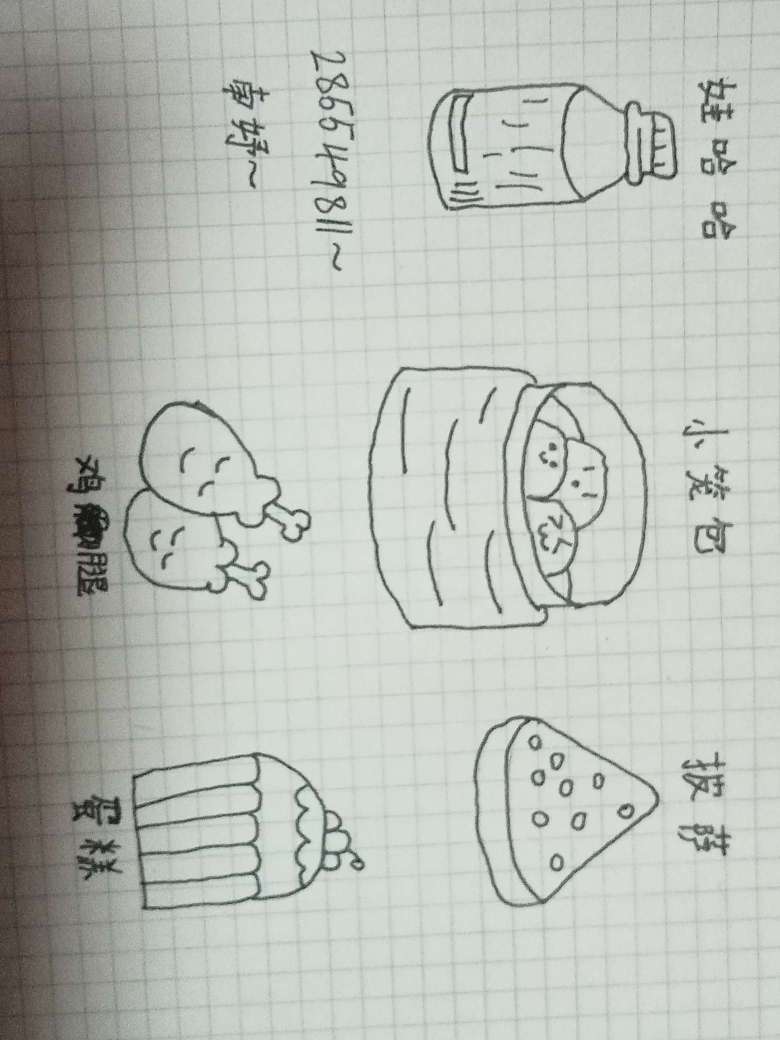 娃哈哈
小笼包
披萨
285549811~
南好~
鸡腿
蛋糕